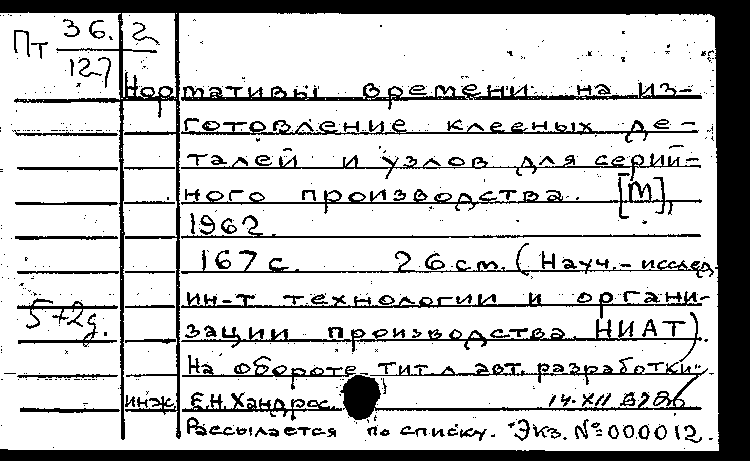 Пт 36. 2
127
Нормативы времени на из-
готовление клееных де-
талей и узлов для серий-
ного производства. [М],
1962.
167 с. 26 см. (Науч.-исслед.
ин-т технологии и органи-
5+2д.
зации производства НИАТ)
На обороте тит. л авт. разработки:
инж. Е.Н. Хандрос. 14.XII
Рассылается по списку. Экз. № 000012.